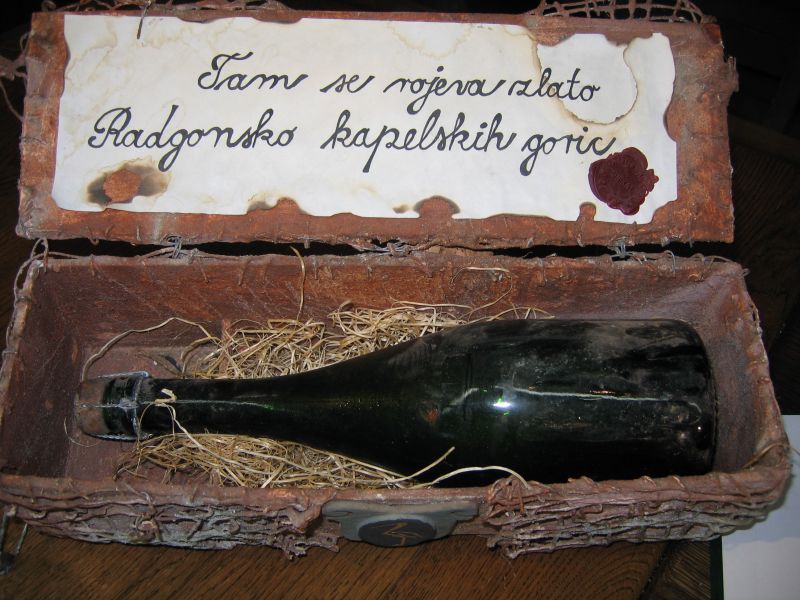 Tam se rojeva zlato
Radgonsko kapelskih goric